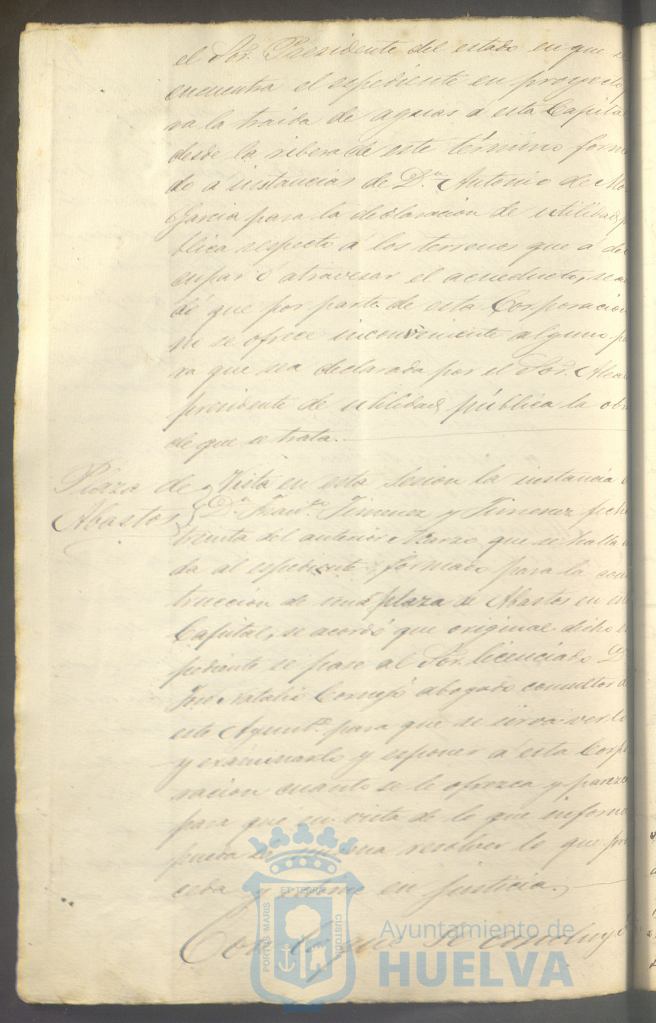 el Sor. Presidente del estado en que se
encuentra el espediente en proyecto
ra la traida de aguas a esta Capital
desde la ribera de este término forma
do a instancias de Dn. Antonio de Mo
Garcia para la declaracion de utilidad p
blica respecto a los terrenos que a de o
cupar ó atravesar el acueducto, se a
dó que por parte de esta Corporacion
no se ofrece inconveniente alguno pa
ra que sea declarada por el Sor. Alca
presidente de utilidad pública la obra
de que se trata.
Plaza de
Abastos
Vista en esta sesion la instancia d
Dn. Franco. Jimenez y Jimenez fecha
treinta del anterior Marzo que se halla
da al espediente formado para la cons
truccion de una plaza de Abastos en es
Capital, se acordó que original dicho es
pediente se pase al Sor. licenciado Dn
José Natalio Cornejo abogado consultor d
este Ayunto. para que se sirva verlo
y examinarlo y esponer a esta Corpo
racion cuanto se le ofrezca y parezca
para que en vista de lo que informe
pueda la misma resolver lo que pro
ceda y estime en justicia.
Con lo que se concluyó
PORTUS MARIS ET TERRE CUSTODIA
Ayuntamiento de
HUELVA